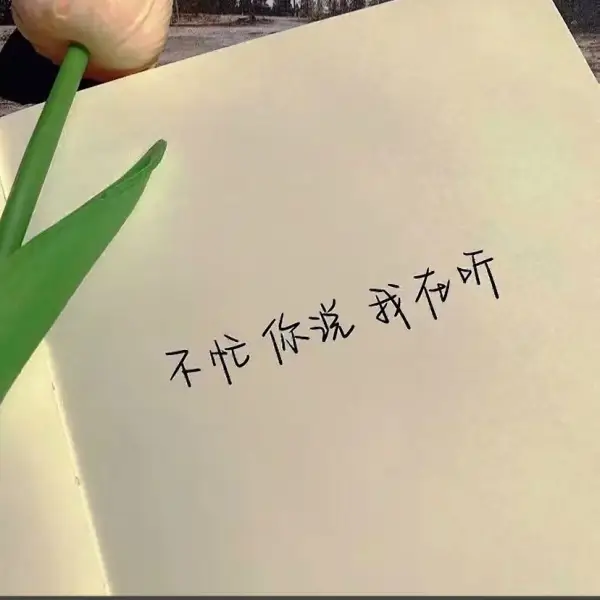 不忙 你说 我在听